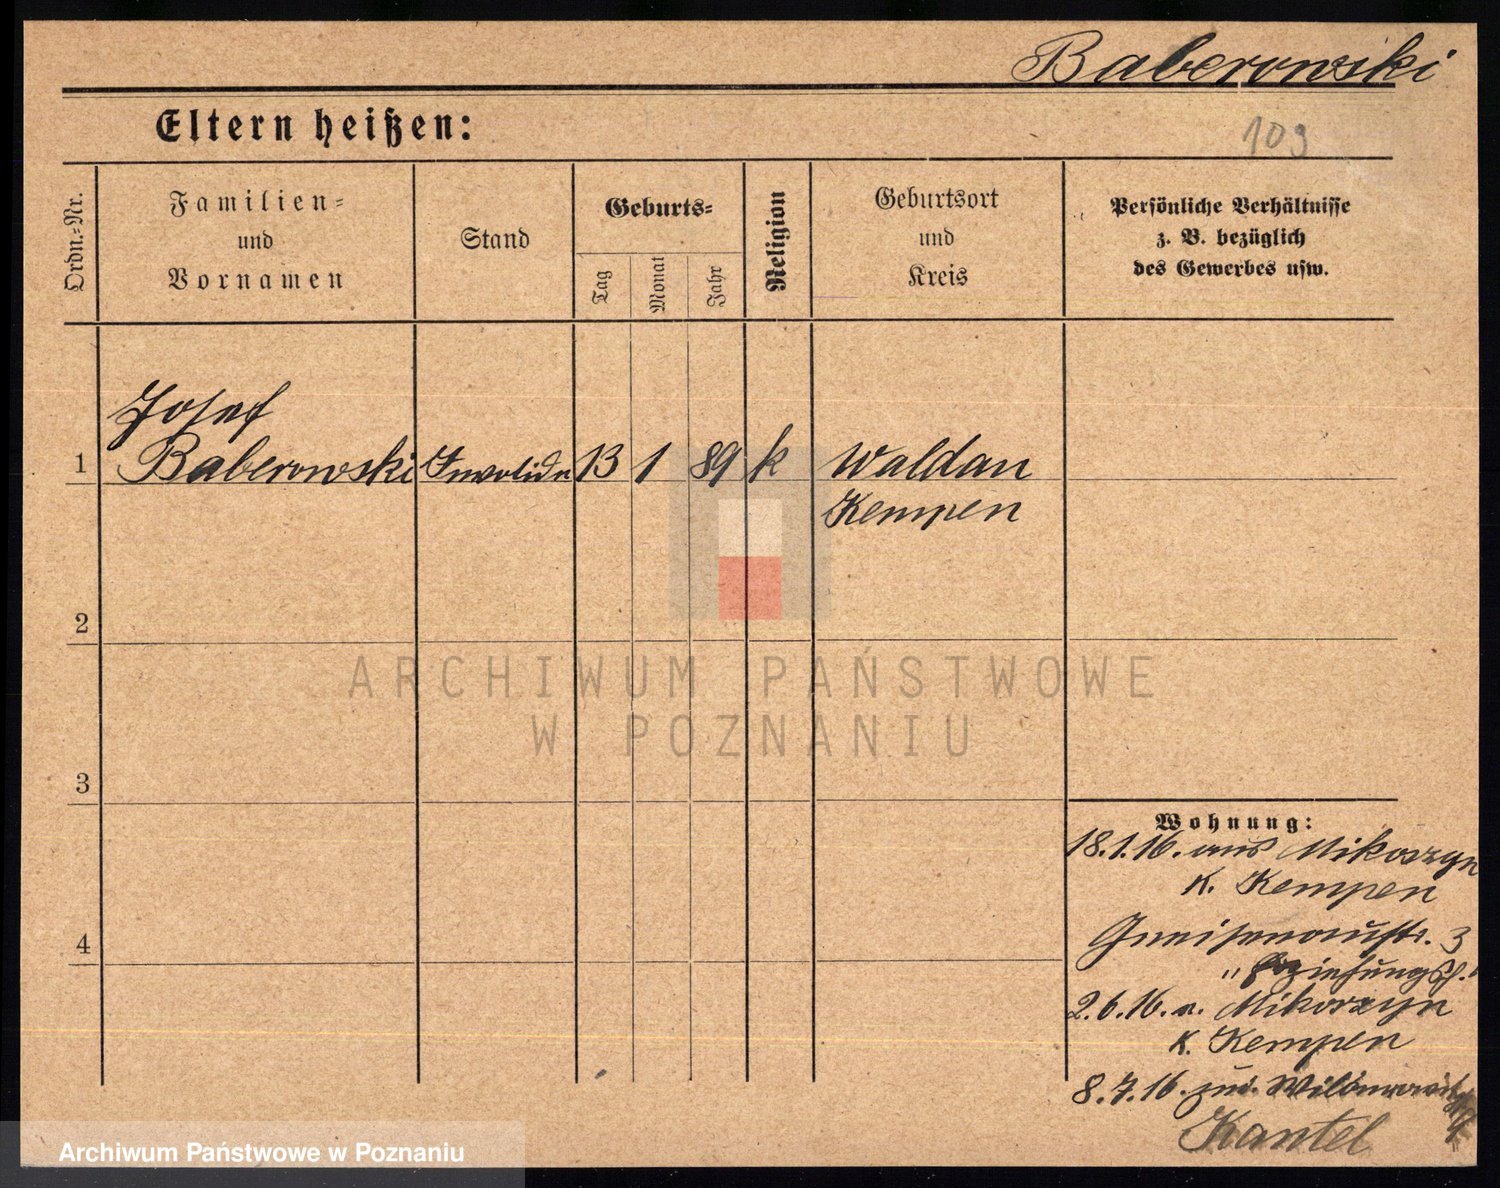 Baberowski
Eltern heißen:
109
Ordn.-Nr.
Familien-
und
Vornamen
Stand
Geburts-
Tag
Monat
Jahr
Religion
Geburtsort
und
Kreis
Persönliche Verhältnisse
z. B. bezüglich
des Gewerbes usw.
Josef
1 Baberowski Invalide 13 1 89 k Waldau
Kempen
2
ARCHIWUM PAŃSTWOWE
W POZNANIU
3
Wohnung:
18.1.16. aus Mikorzyn
K. Kempen
4
Gneisenaustr. 3
2.6.16. n. Mikorzyn
K. Kempen
8.7.16.
Kantel
Archiwum Państwowe w Poznaniu